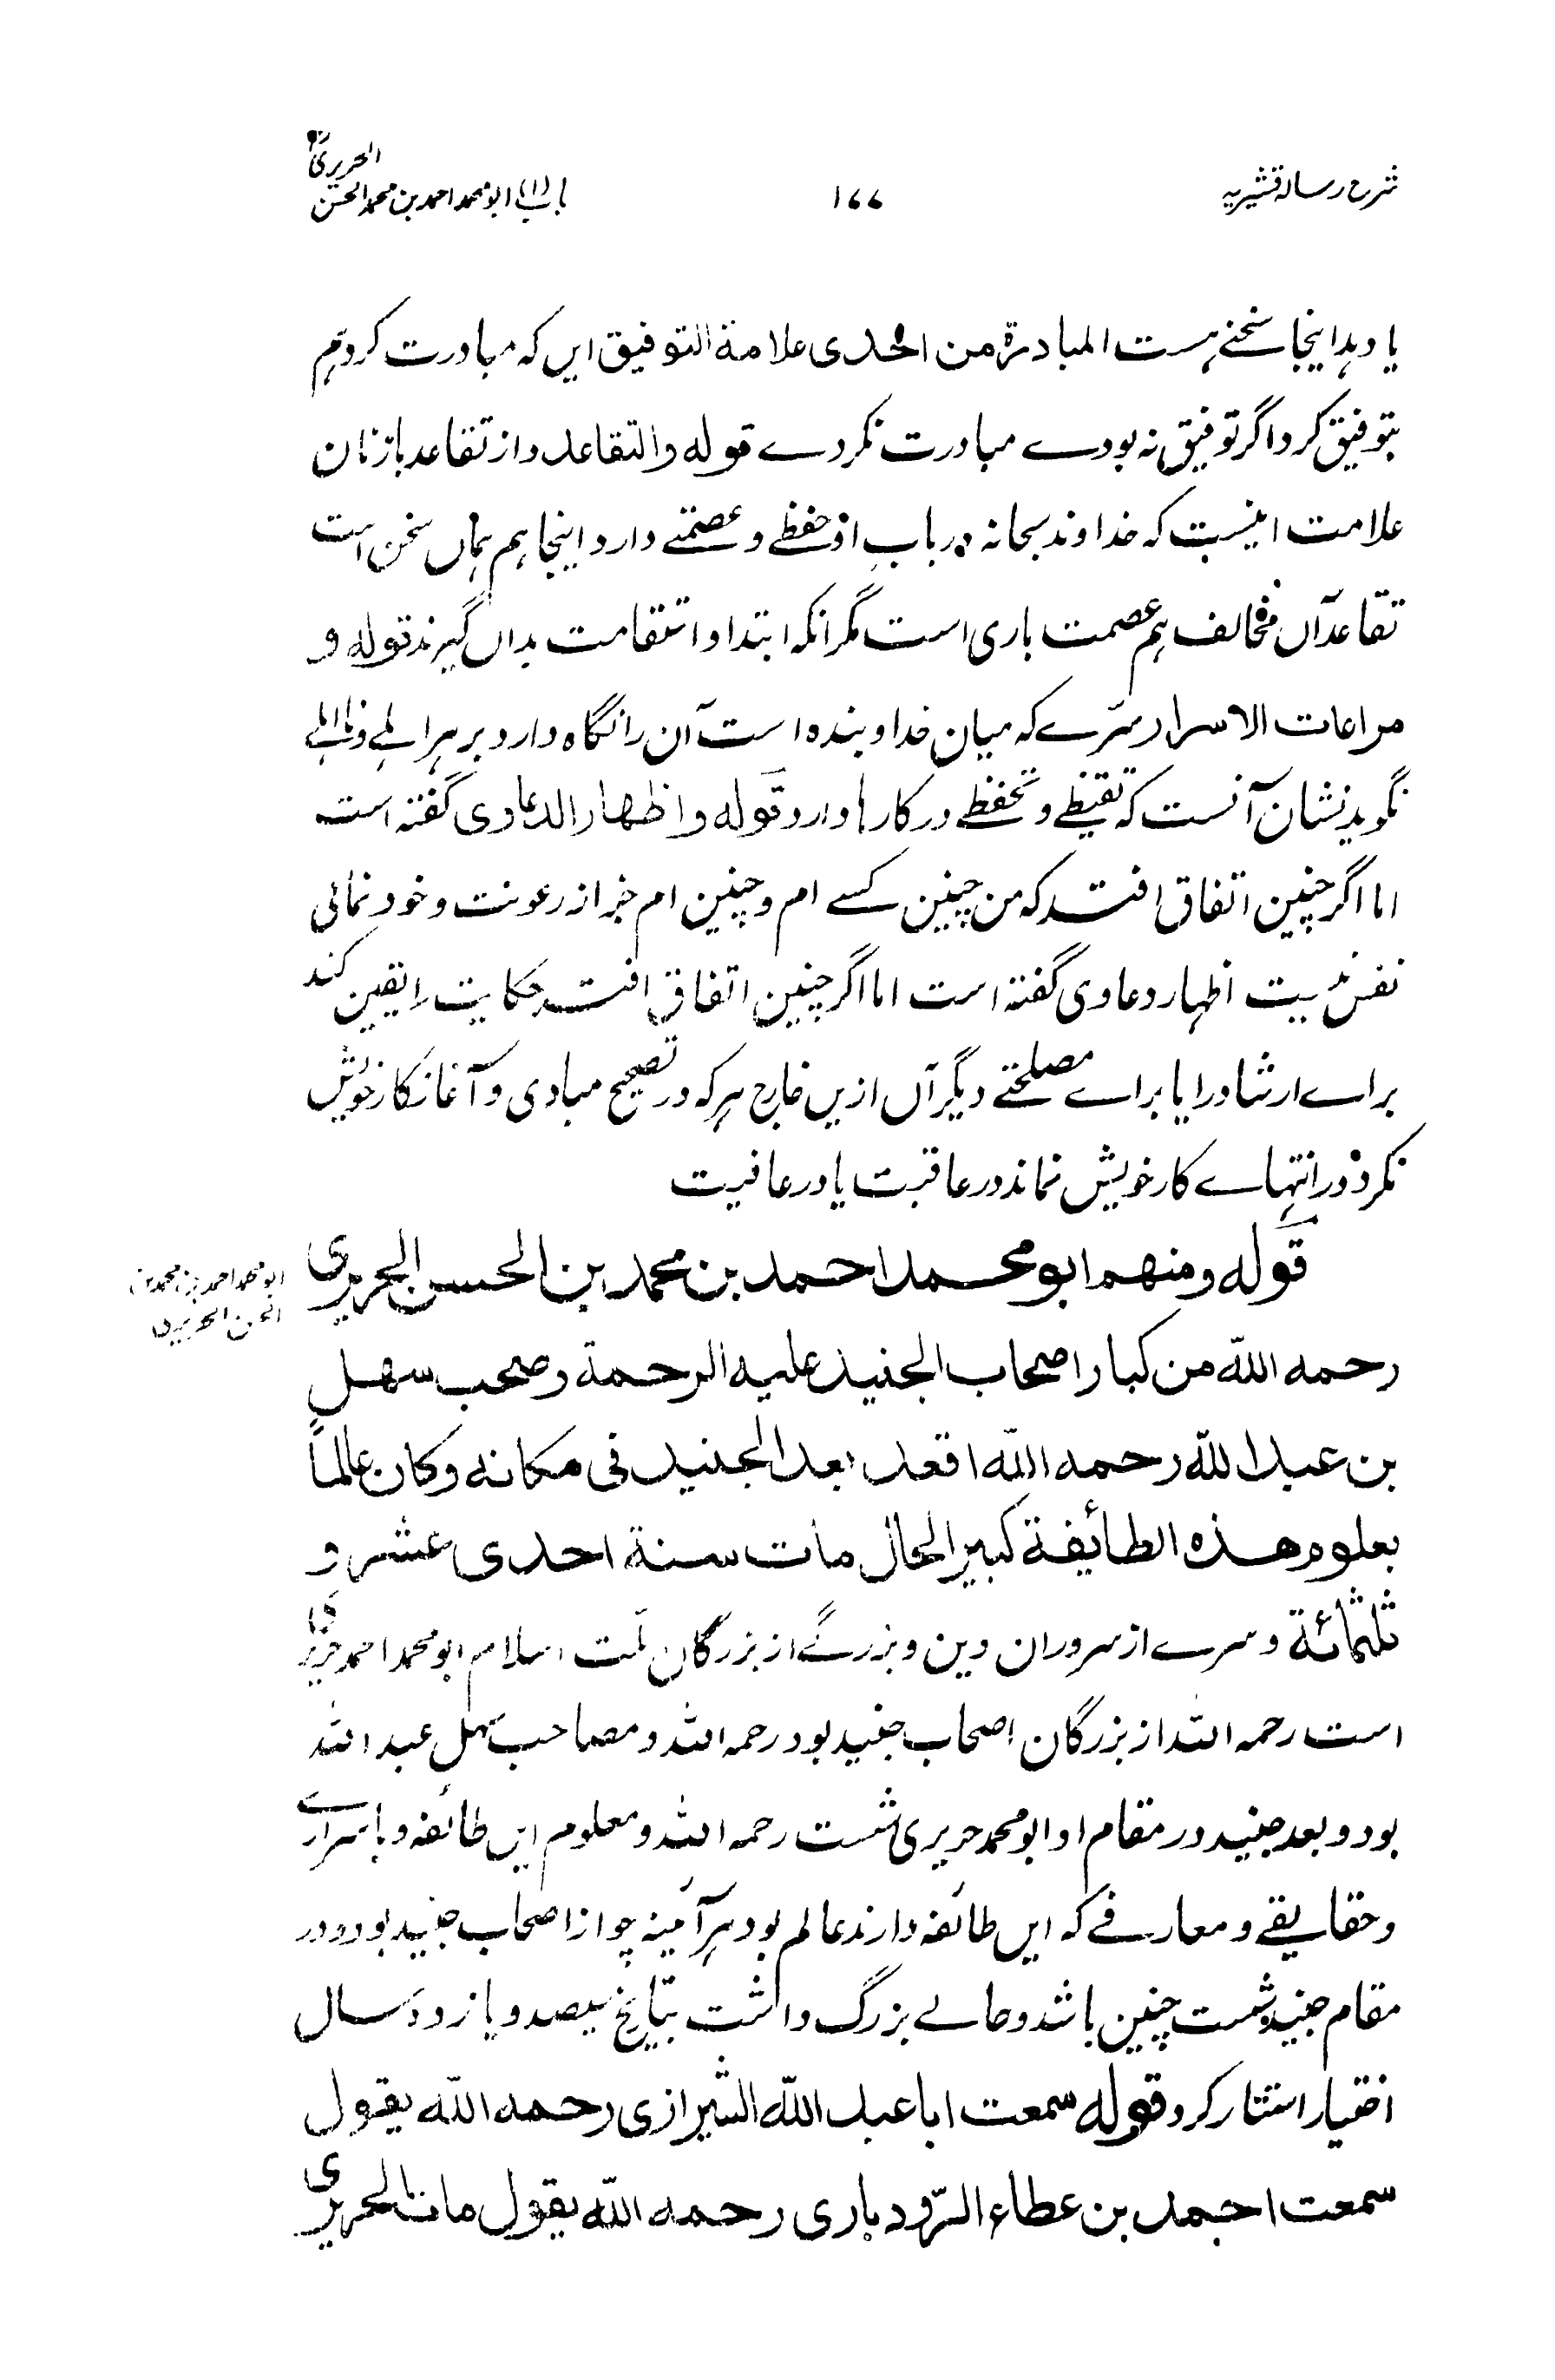 شرح رسالہ قشیریہ
۱۷۷
باب (۱) ابو محمد احمد بن محمد الحسن
الحریری
یا دہد اینجا سخنے ہست المبادرة من احدی علامة التوفیق ایں کہ مبادرت کرد ہم
بتوفیق کرد اگر توفیق نہ بودے مبادرت نکردے قوله والتقاعد و از تقاعد باز ماندن
علامت اینست کہ خداوند سبحانہ در باب او حفظے و عصمتے دارد اینجا ہم ہماں سخن است
تقاعد آں مخالف ہم عصمت باری است مگر آنکہ ابتدا و استقامت بداں گیرند قوله و
مراعات الاسرار سرّے کہ میان خدا و بندہ است آن را نگاہ دارد بر ہر اہلے و نااہلے
نگوید نشان آنست کہ تیقظے و تحفظے در کارہا دارد قوله و اظهار الدعاوی گفتہ است
اما اگر چنین اتفاق افتد کہ من چنین کسے ام و چنین ام خبر از رعونت و خود نمائی
نفس نیست اظہار دعاوی گفتہ است اما اگر چنین اتفاق افتد حکایت را یقین کند
براے ارشاد را یا براے مصلحتے دیگر آں ازیں خارج ہر کہ در تصحیح مبادی و آغاز کار خویش
نکرد در انتہاے کار خویش نماند در عاقبت یا در عافیت
قوله ومنهم ابو محمد احمد بن محمد بن الحسن الجریری
ابو محمد احمد بن محمد بن
الحسن الحریری
رحمه الله من کبار اصحاب الجنید علیه الرحمة وصحب سهل
بن عبد الله رحمه الله اقعد بعد الجنید فی مکانه وکان عالماً
بعلوم هذه الطائفة کبیر الحال مات سنة احدی عشر و
ثلثمائة و سرے از سروران دین و بزرگے از بزرگان ملّت اسلام ابو محمد احمد حریری
است رحمہ اللہ از بزرگان اصحاب جنید بود رحمہ اللہ و مصاحب سہل عبد اللہ
بود و بعد جنید در مقام او ابو محمد حریری نشست رحمہ اللہ و معلوم ایں طائفہ و باسرارے
و حقایقے و معارفے کہ ایں طائفہ دارند عالم بود ہر آئینہ چو از اصحاب جنید بود و در
مقام جنید نشست چنین باشد و حالے بزرگ داشت بتاریخ سیصد و یازدہ سال
اختیار استتار کرد قوله سمعت ابا عبد الله الشیرازی رحمه الله یقول
سمعت احمد بن عطاء الرّودباری رحمه الله یقول مات الحریری